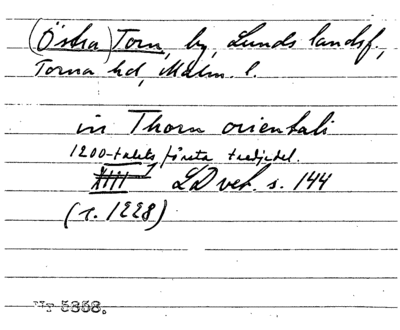 (Östra) Torn, by, Lunds landsf.,
Torna hd, Malm. l.
in Thorn orientali
1200-talets första tredjedel.
LD vet. s. 144
(r. 1228)
Nr 5858.